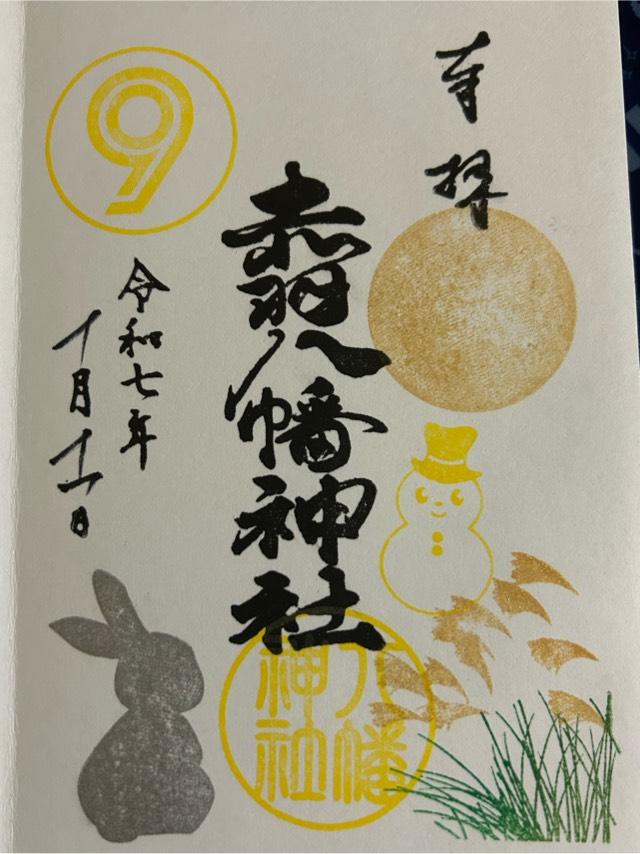 奉拝
赤羽八幡神社
八幡
神社
9
令和七年
十月十一日